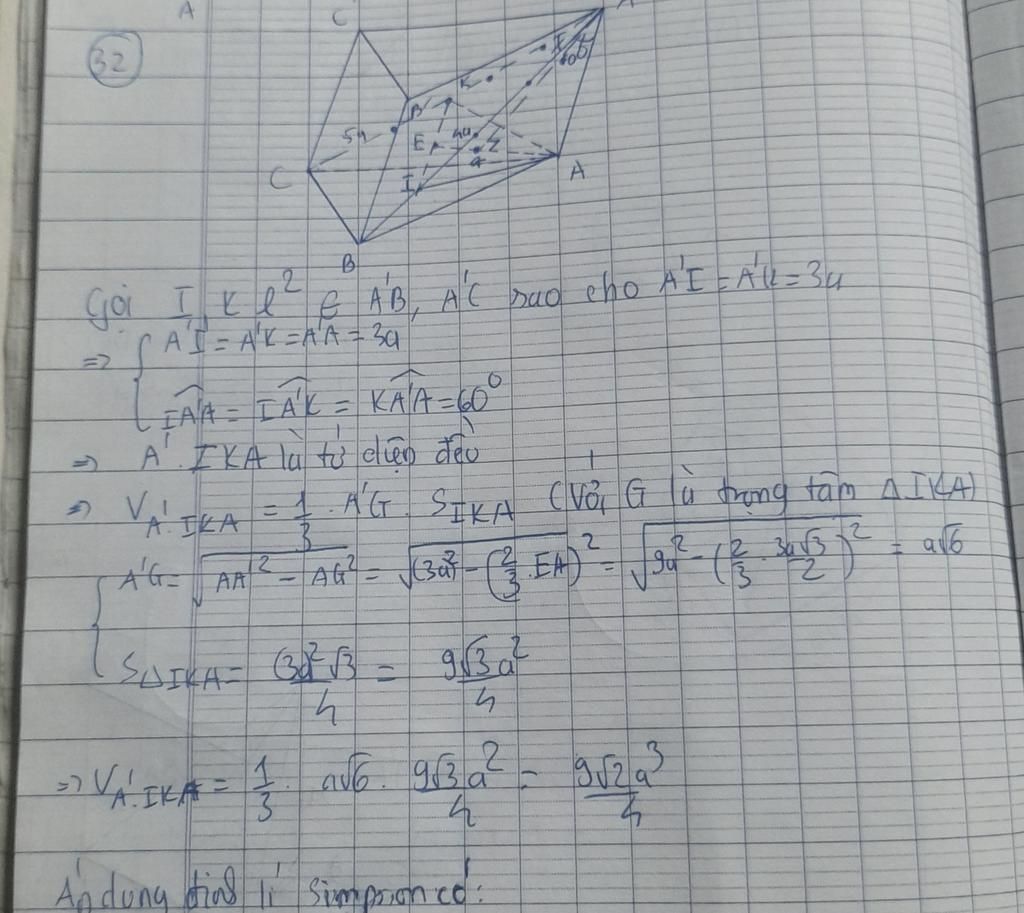 32
A
C'
A'
K
I
60°
B'
5a
E
4a
C
I
A
B
Gọi I, K lần lượt ∈ A'B, A'C sao cho A'I = A'K = 3a
=> { A'I = A'K = A'A = 3a
IA'A = IA'K = KA'A = 60°
=> A'.IKA là tứ diện đều
=> V_{A'.IKA} = 1/3 . A'G . S_{IKA} (Với G là trọng tâm ΔIKA)
{ A'G = √(AA'² - AG²) = √((3a)² - (2/3 . EA)²) = √(9a² - (2/3 . 3a√3/2)²) = a√6
S_{ΔIKA} = (3a)²√3/4 = 9√3a²/4
=> V_{A'.IKA} = 1/3 . a√6 . 9√3a²/4 = 9√2a³/4
Áp dụng định lí Simpson có: